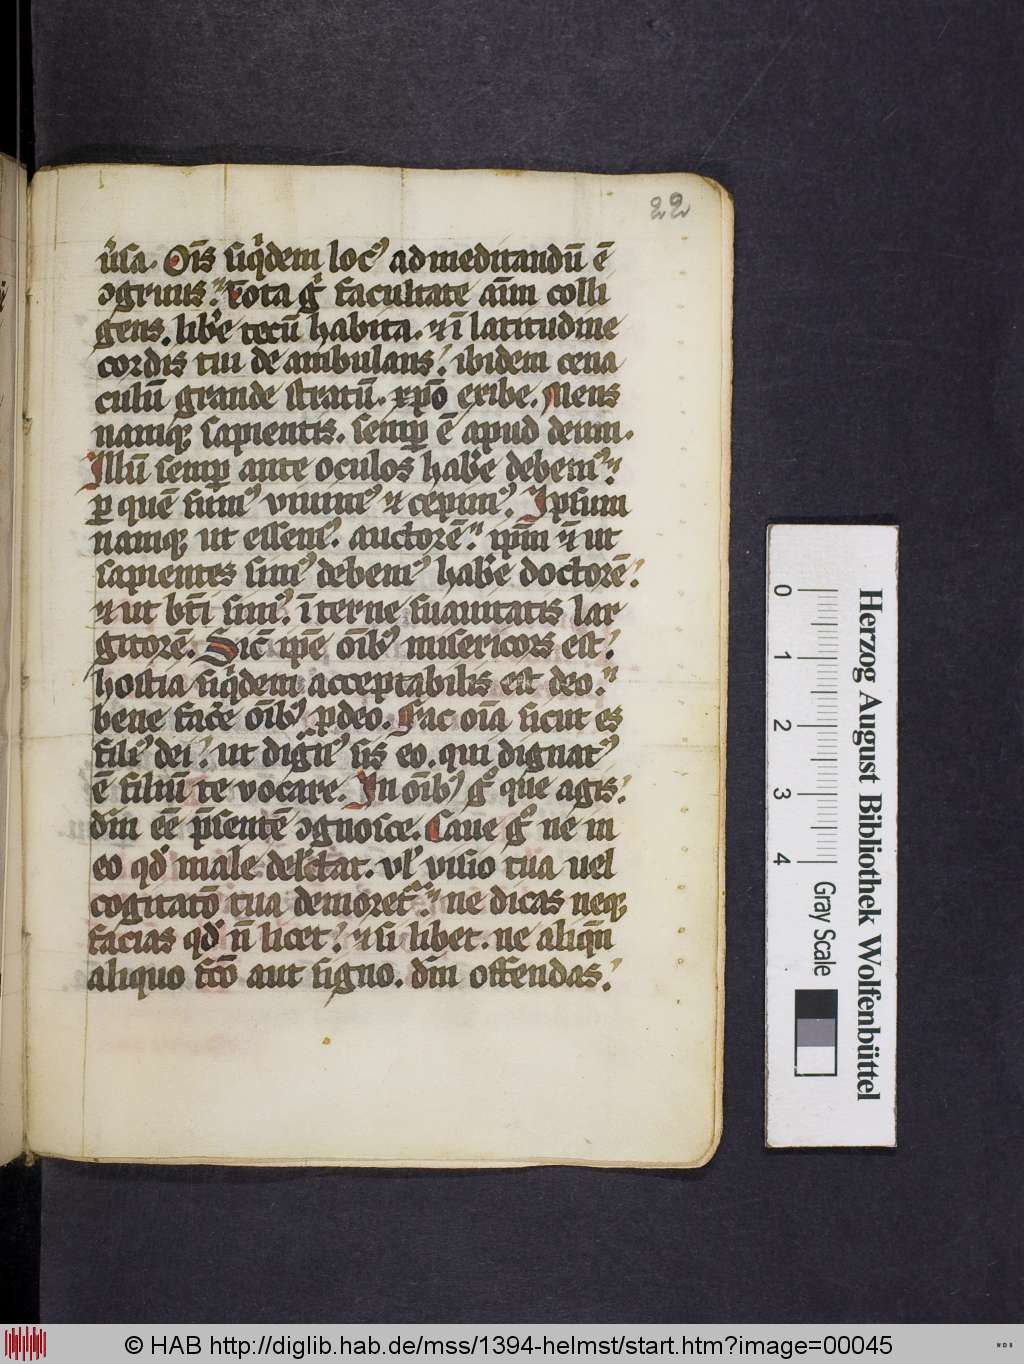 22
ůsa. Oīs siq̇dem locꝰ ad meditandū ē
ↄgruus. Tota gͦ facultate aīm colli
gens. libe̓ tecū habita. ⁊ ī latitudine
cordis tui de ambulans. ibidem cena
culū grande stratū. xp̄o exibe. Mens
namqꝫ sapientis. semꝑ ē apud deum.
Illū semꝑ ante oculos habe̓ debemꝰ
ꝑ quē sumꝰ viuimꝰ ⁊ cepimꝰ. Ipsum
namqꝫ ut essemꝰ. auctorē. ip̄m ⁊̄ ut
sapientes simꝰ debemꝰ habe̓ doctorē.
⁊ ut bt̄i simꝰ. īterne suauitatis lar
gitorē. Sic̄ ip̄e oībꝰ misericors est.
hostia siq̇dem acceptabilis est deo.
bene face̓ oībꝰ ꝓ deo. Fac oīa sicut es
filiꝰ dei. ut dignꝰ sis eo. qui dignatꝰ
ē filiū te vocare. In oībꝰ gͦ que agis.
dm̄ eē p̄sentē ↄgnosce. Caue gͦ ne in
eo qd̓ male delc̄tat. vl̓ visio tua uel
cogitatō tua demoret᷑. ne dicas neqꝫ
facias qd̓ n̄ licet. ⁊ si libet. ne aliqn̄
aliquo fc̄o aut signo. dm̄ offendas.
0
1
2
3
4
Gray Scale
Herzog August Bibliothek Wolfenbüttel
© HAB http://diglib.hab.de/mss/1394-helmst/start.htm?image=00045